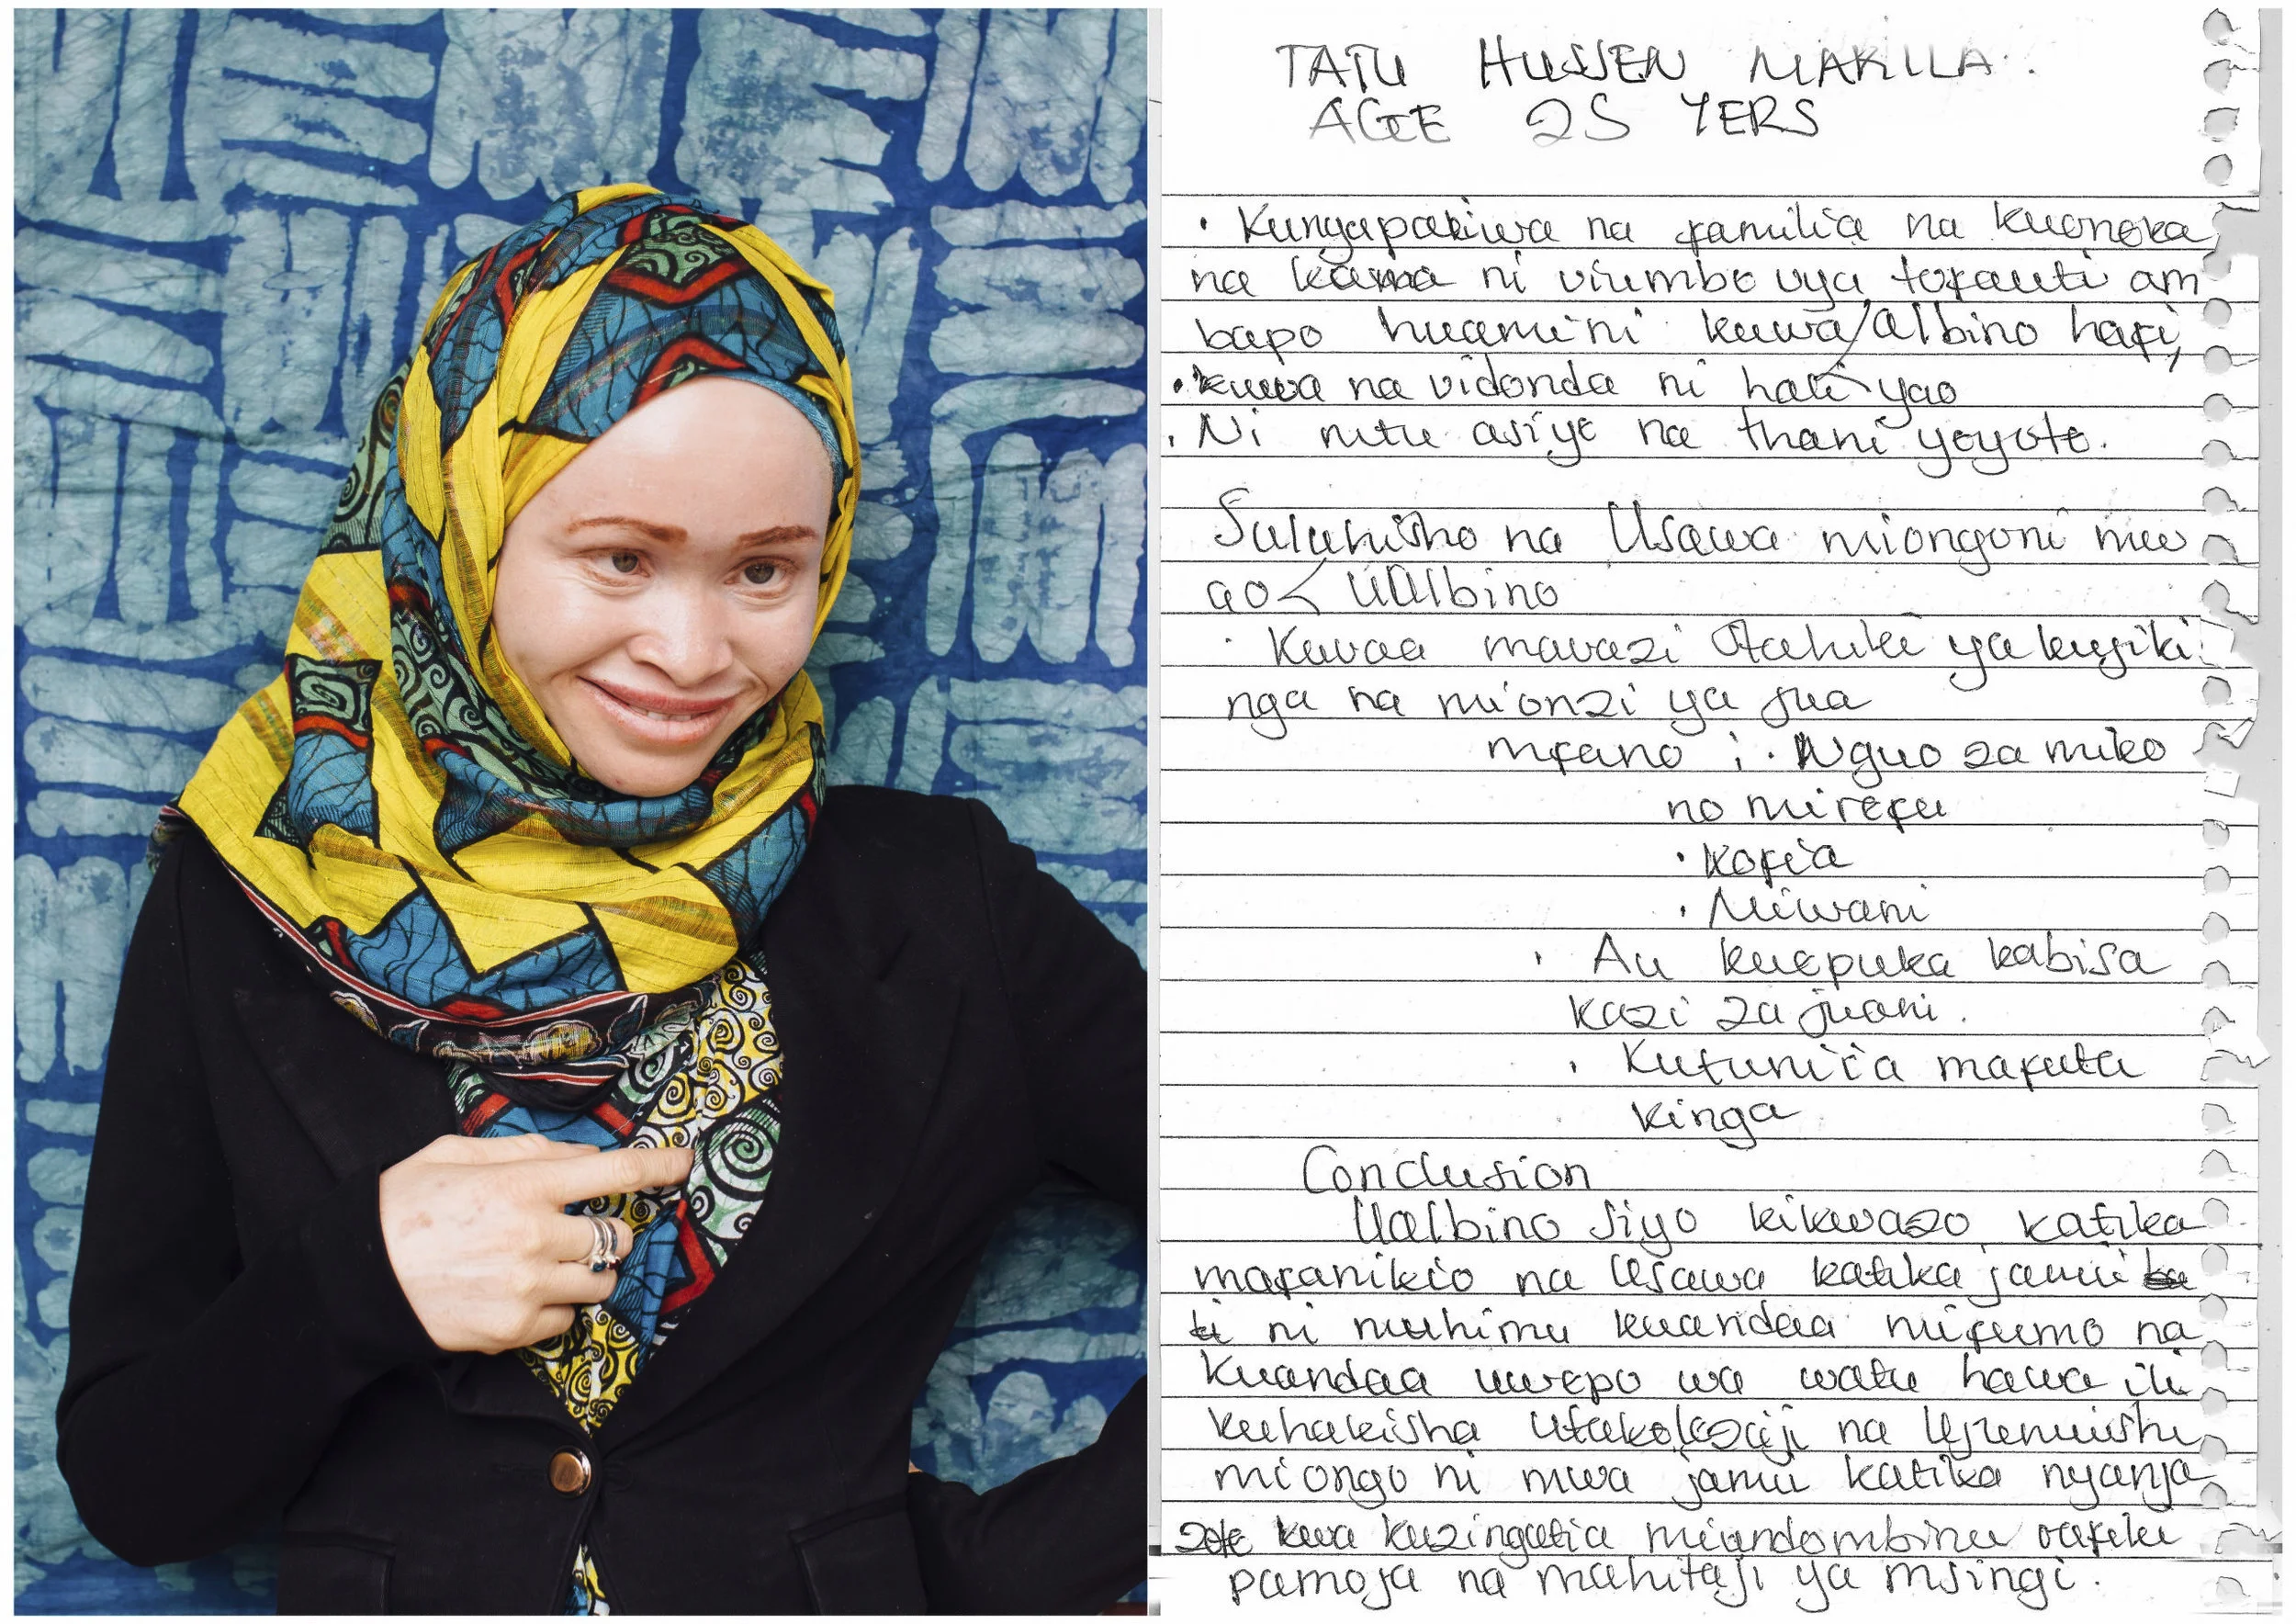 TATU HUSSEN MAKILLA.
AGE 25 YERS
• Kunyapaliwa na familia na kuoneka
na kama ni viumbe vya tofauti am
bapo huamini kuwa/albino hafi,
• kuwa na vidonda ni hali yao
. Ni mtu asiye na thani yeyote.
Suluhisho na Usawa miongoni mw
ao < uAlbino
· Kuvaa mavazi Stahiki ya kujiki
nga na mionzi ya jua
mfano ; · Nguo za miko
no mirefu
• Kofia
• Miwani
• Au kuepuka kabisa
kazi za juani.
• Kutumia mafuta
kinga
Conclusion
Ualbino siyo kikwazo katika
mafanikio na Usawa katika jamii
ni muhimu kuandaa mifumo na
kuandaa uwepo wa watu hawa ili
kuhakisha na
miongo ni mwa jamu katika nyanja
zote kwa kuzingatia miundombinu rafiki
pamoja na mahitaji ya msingi.